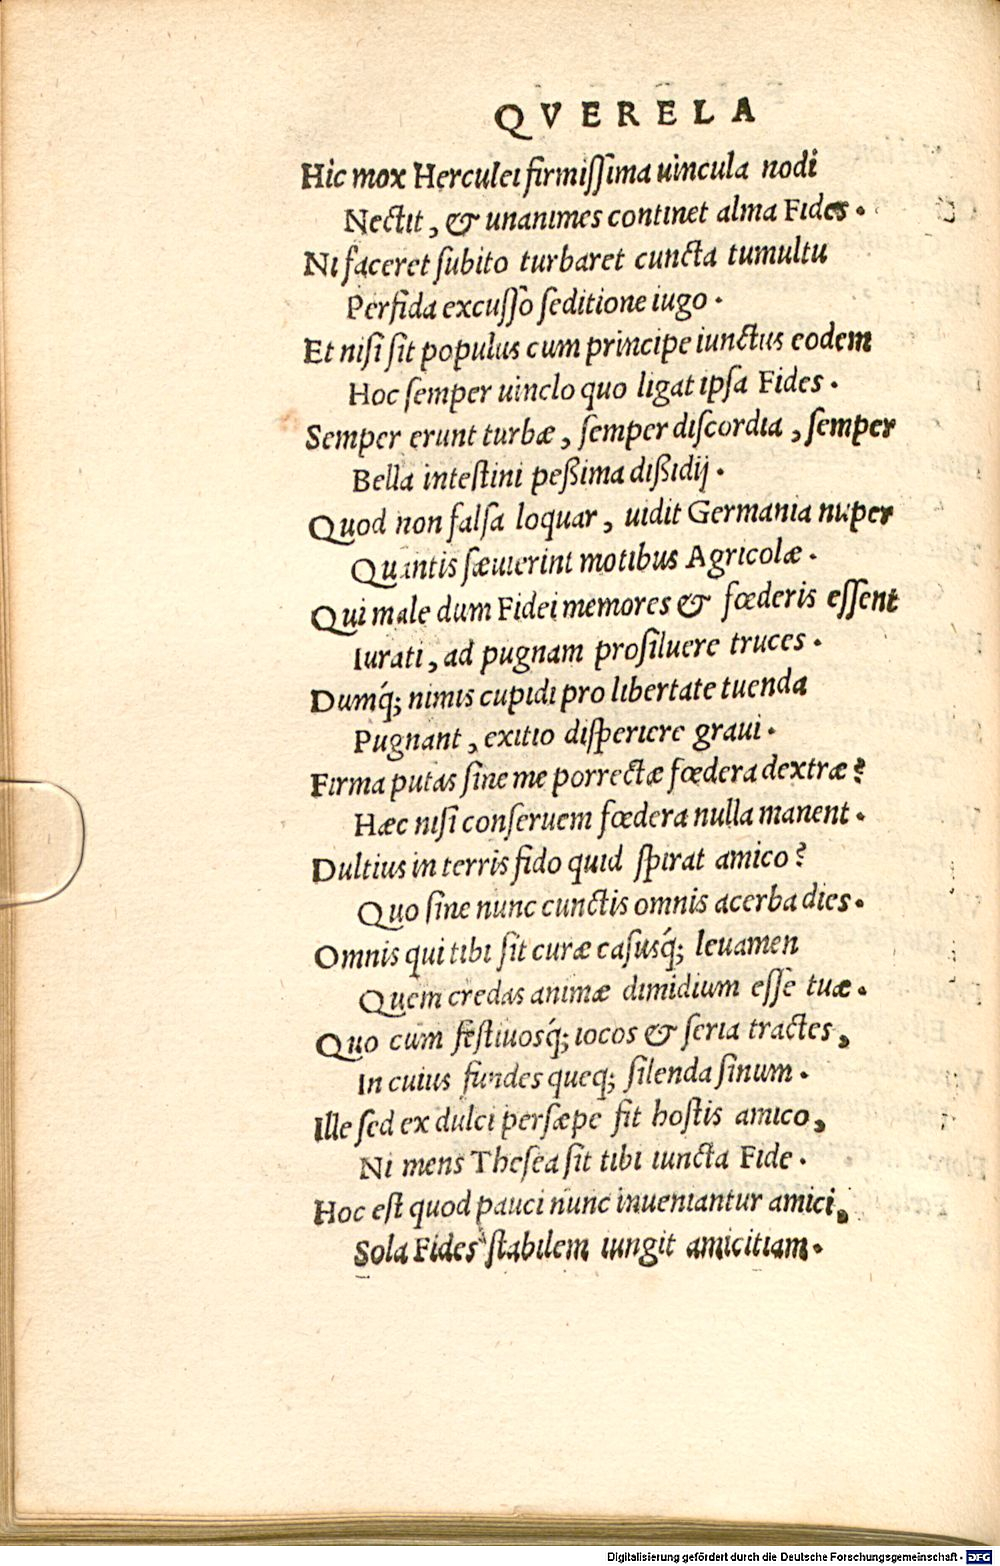 QVERELA
Hic mox Herculei firmissima uincula nodi
Nectit, & unanimes continet alma Fides.
Ni faceret subito turbaret cuncta tumultu
Perfida excusso seditione iugo.
Et nisi sit populus cum principe iunctus eodem
Hoc semper uinclo quo ligat ipsa Fides.
Semper erunt turbæ, semper discordia, semper
Bella intestini peßima dißidij.
Quod non falsa loquar, uidit Germania nuper
Quantis sæuierint motibus Agricolæ.
Qui male dum Fidei memores & fœderis essent
Iurati, ad pugnam prosiluere truces.
Dumq́; nimis cupidi pro libertate tuenda
Pugnant, exitio disperiere graui.
Firma putas sine me porrectæ fœdera dextræ?
Hæc nisi conseruem fœdera nulla manent.
Dultius in terris fido quid spirat amico?
Quo sine nunc cunctis omnis acerba dies.
Omnis qui tibi sit curæ casusq́; leuamen
Quem credas animæ dimidium esse tuæ.
Quo cum festiuosq́; iocos & seria tractes,
In cuius fundes queq; silenda sinum.
Ille sed ex dulci persæpe fit hostis amico,
Ni mens Thesea sit tibi iuncta Fide.
Hoc est quod pauci nunc inueniantur amici,
Sola Fides stabilem iungit amicitiam.
Digitalisierung gefördert durch die Deutsche Forschungsgemeinschaft - DFG